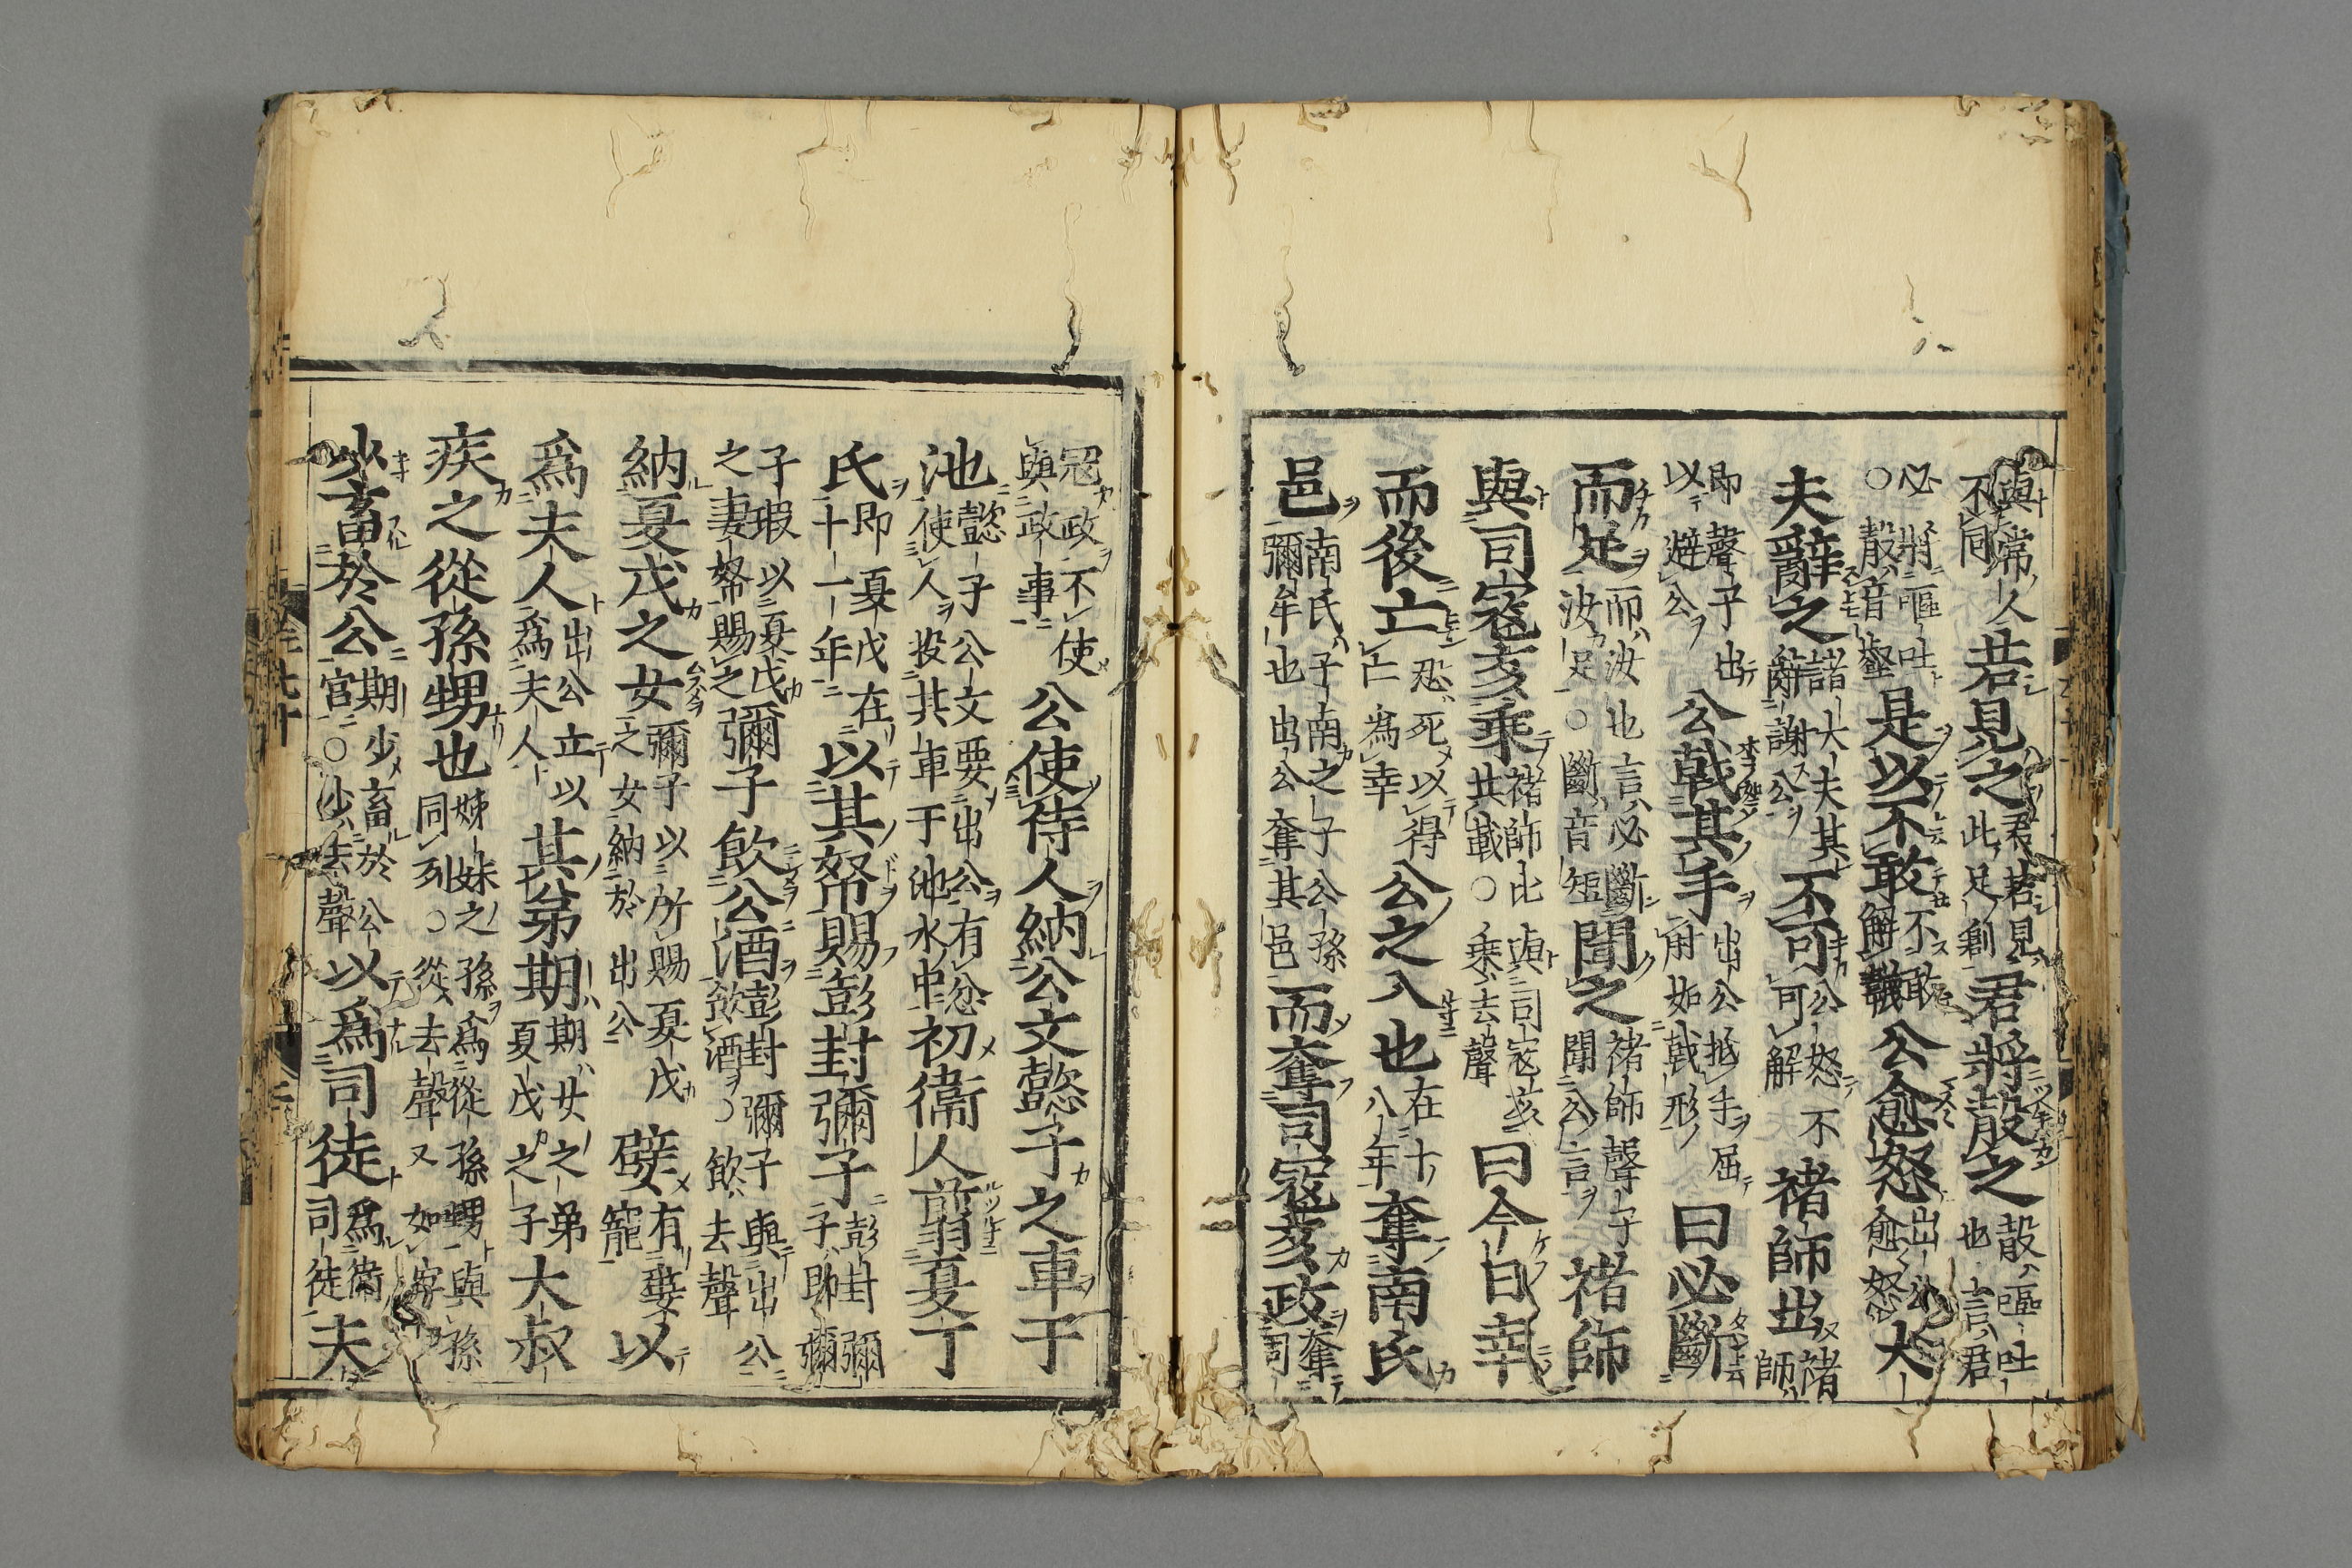 與常人不同若見之君若見此足創君將㱿之㱿嘔吐也言君
必將嘔吐○㱿音壑是以不敢不敢解韈公愈怒出公愈怒大
夫辭之諸大夫其辭謝公不可公怒不可解褚師出褚師
即聲子出以避公公戟其手出公抵手屈肘如戟形曰必斷
而足而汝也言必斷汝足○斷音短聞之褚師聲子聞公言褚師
與司寇亥乘褚師比與司寇亥共載○乘去聲曰今日幸
而後亡恐死以得亡為幸公之入也在十八年奪南氏
邑南氏子南之子公孫彌牟也出公奪其邑而奪司寇亥政奪司
冦政不使與政事公使侍人納公文懿子之車于
池懿子公文要出公有忿使人投其車于池水中初衞人翦夏丁
氏即夏戊在十一年以其帑賜彭封彌子彭封彌子即彌
子瑕以夏戊之妻帑賜之彌子飲公酒彭封彌子與出公飲酒○飲去聲
納夏戊之女彌子以所賜夏戊之女納於出公嬖有嬖寵以
爲夫人出公立以爲夫人其弟期期女之弟夏戊之子大叔
疾之從孫甥也姊妹之孫爲從孫甥與孫同列○從去聲又如字
少畜於公期少畜於公宮○少去聲以爲司徒爲衞司徒夫